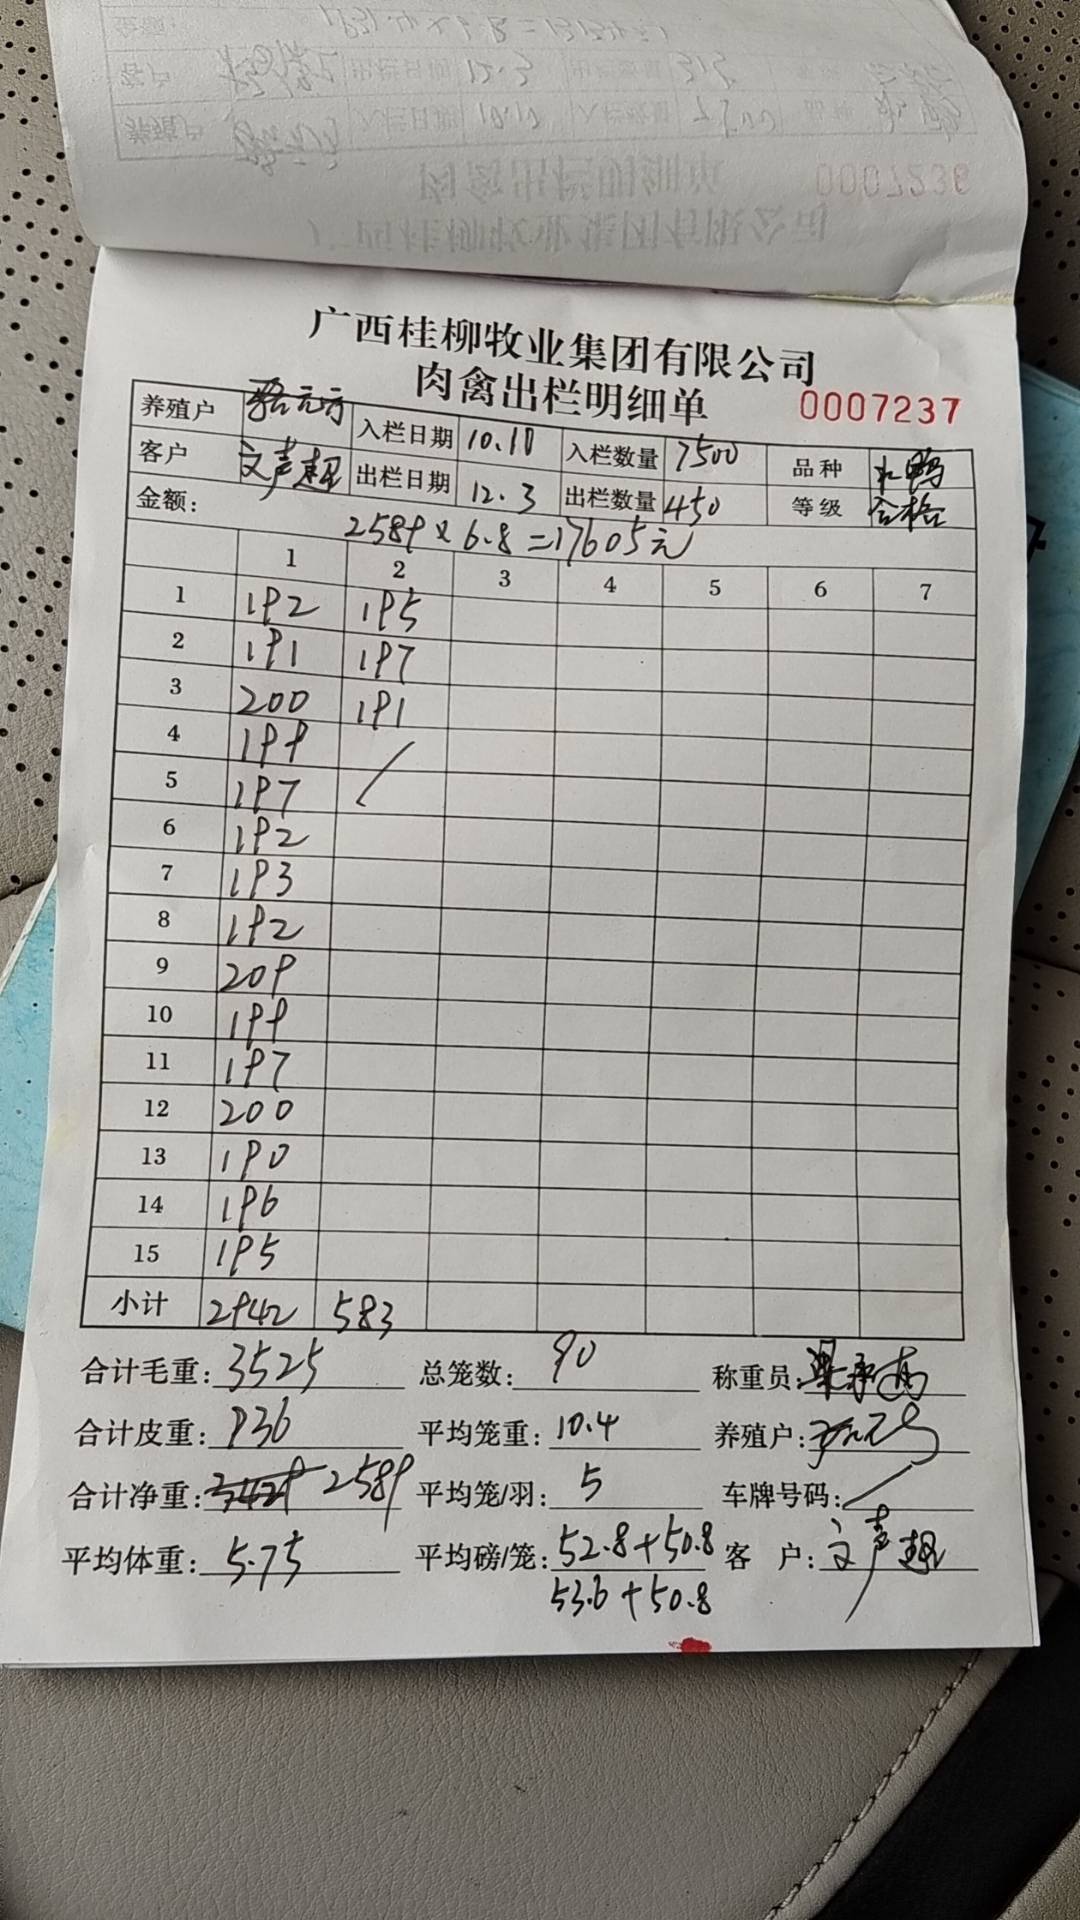 0007236
广西桂柳牧业集团有限公司
肉禽出栏明细单 0007237
养殖户 入栏日期 10.10 入栏数量 7500 品种 鸭
客户 文声超 出栏日期 12.3 出栏数量 450 等级 合格
金额: 2589×6.8=17605元
1 2 3 4 5 6 7
1 192 195
2 191 197
3 200 191
4 199 /
5 197
6 192
7 193
8 192
9 209
10 199
11 197
12 200
13 190
14 196
15 195
小计 2942 583
合计毛重: 3525 总笼数: 90 称重员:
合计皮重: 936 平均笼重: 10.4 养殖户:
合计净重: 2589 平均笼/羽: 5 车牌号码: /
平均体重: 5.75 平均磅/笼: 52.8+50.8 客 户: 文声超
53.6+50.8